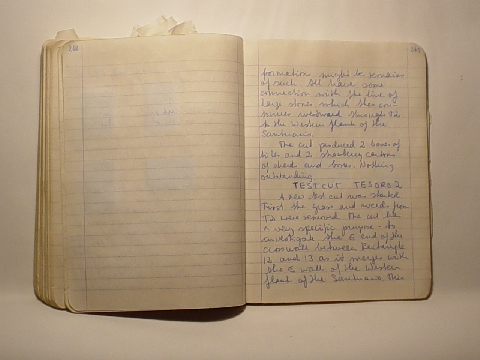 formation might be remains
of such. It'll have some
connection with the line of
large stones which then con-
tinues westward through T2
to the Western flank of the
Santuario.
The cut produced 2 boxes of
tiles and 2 strawberry cartons
of sherds and bones. Nothing
outstanding.
TESTCUT TESORO 2
A new test cut was started
First the grass and weeds from
T2 were removed. The cut has
a very specific purpose - to
investigate the E end of the
crosswall between Rectangle
12 and 13 as it merges with
the E wall of the Western
flank of the Santuario. This